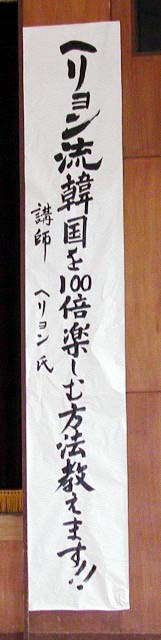 ヘリョン流韓国を100倍楽しむ方法教えます!!
講師 ヘリョン氏